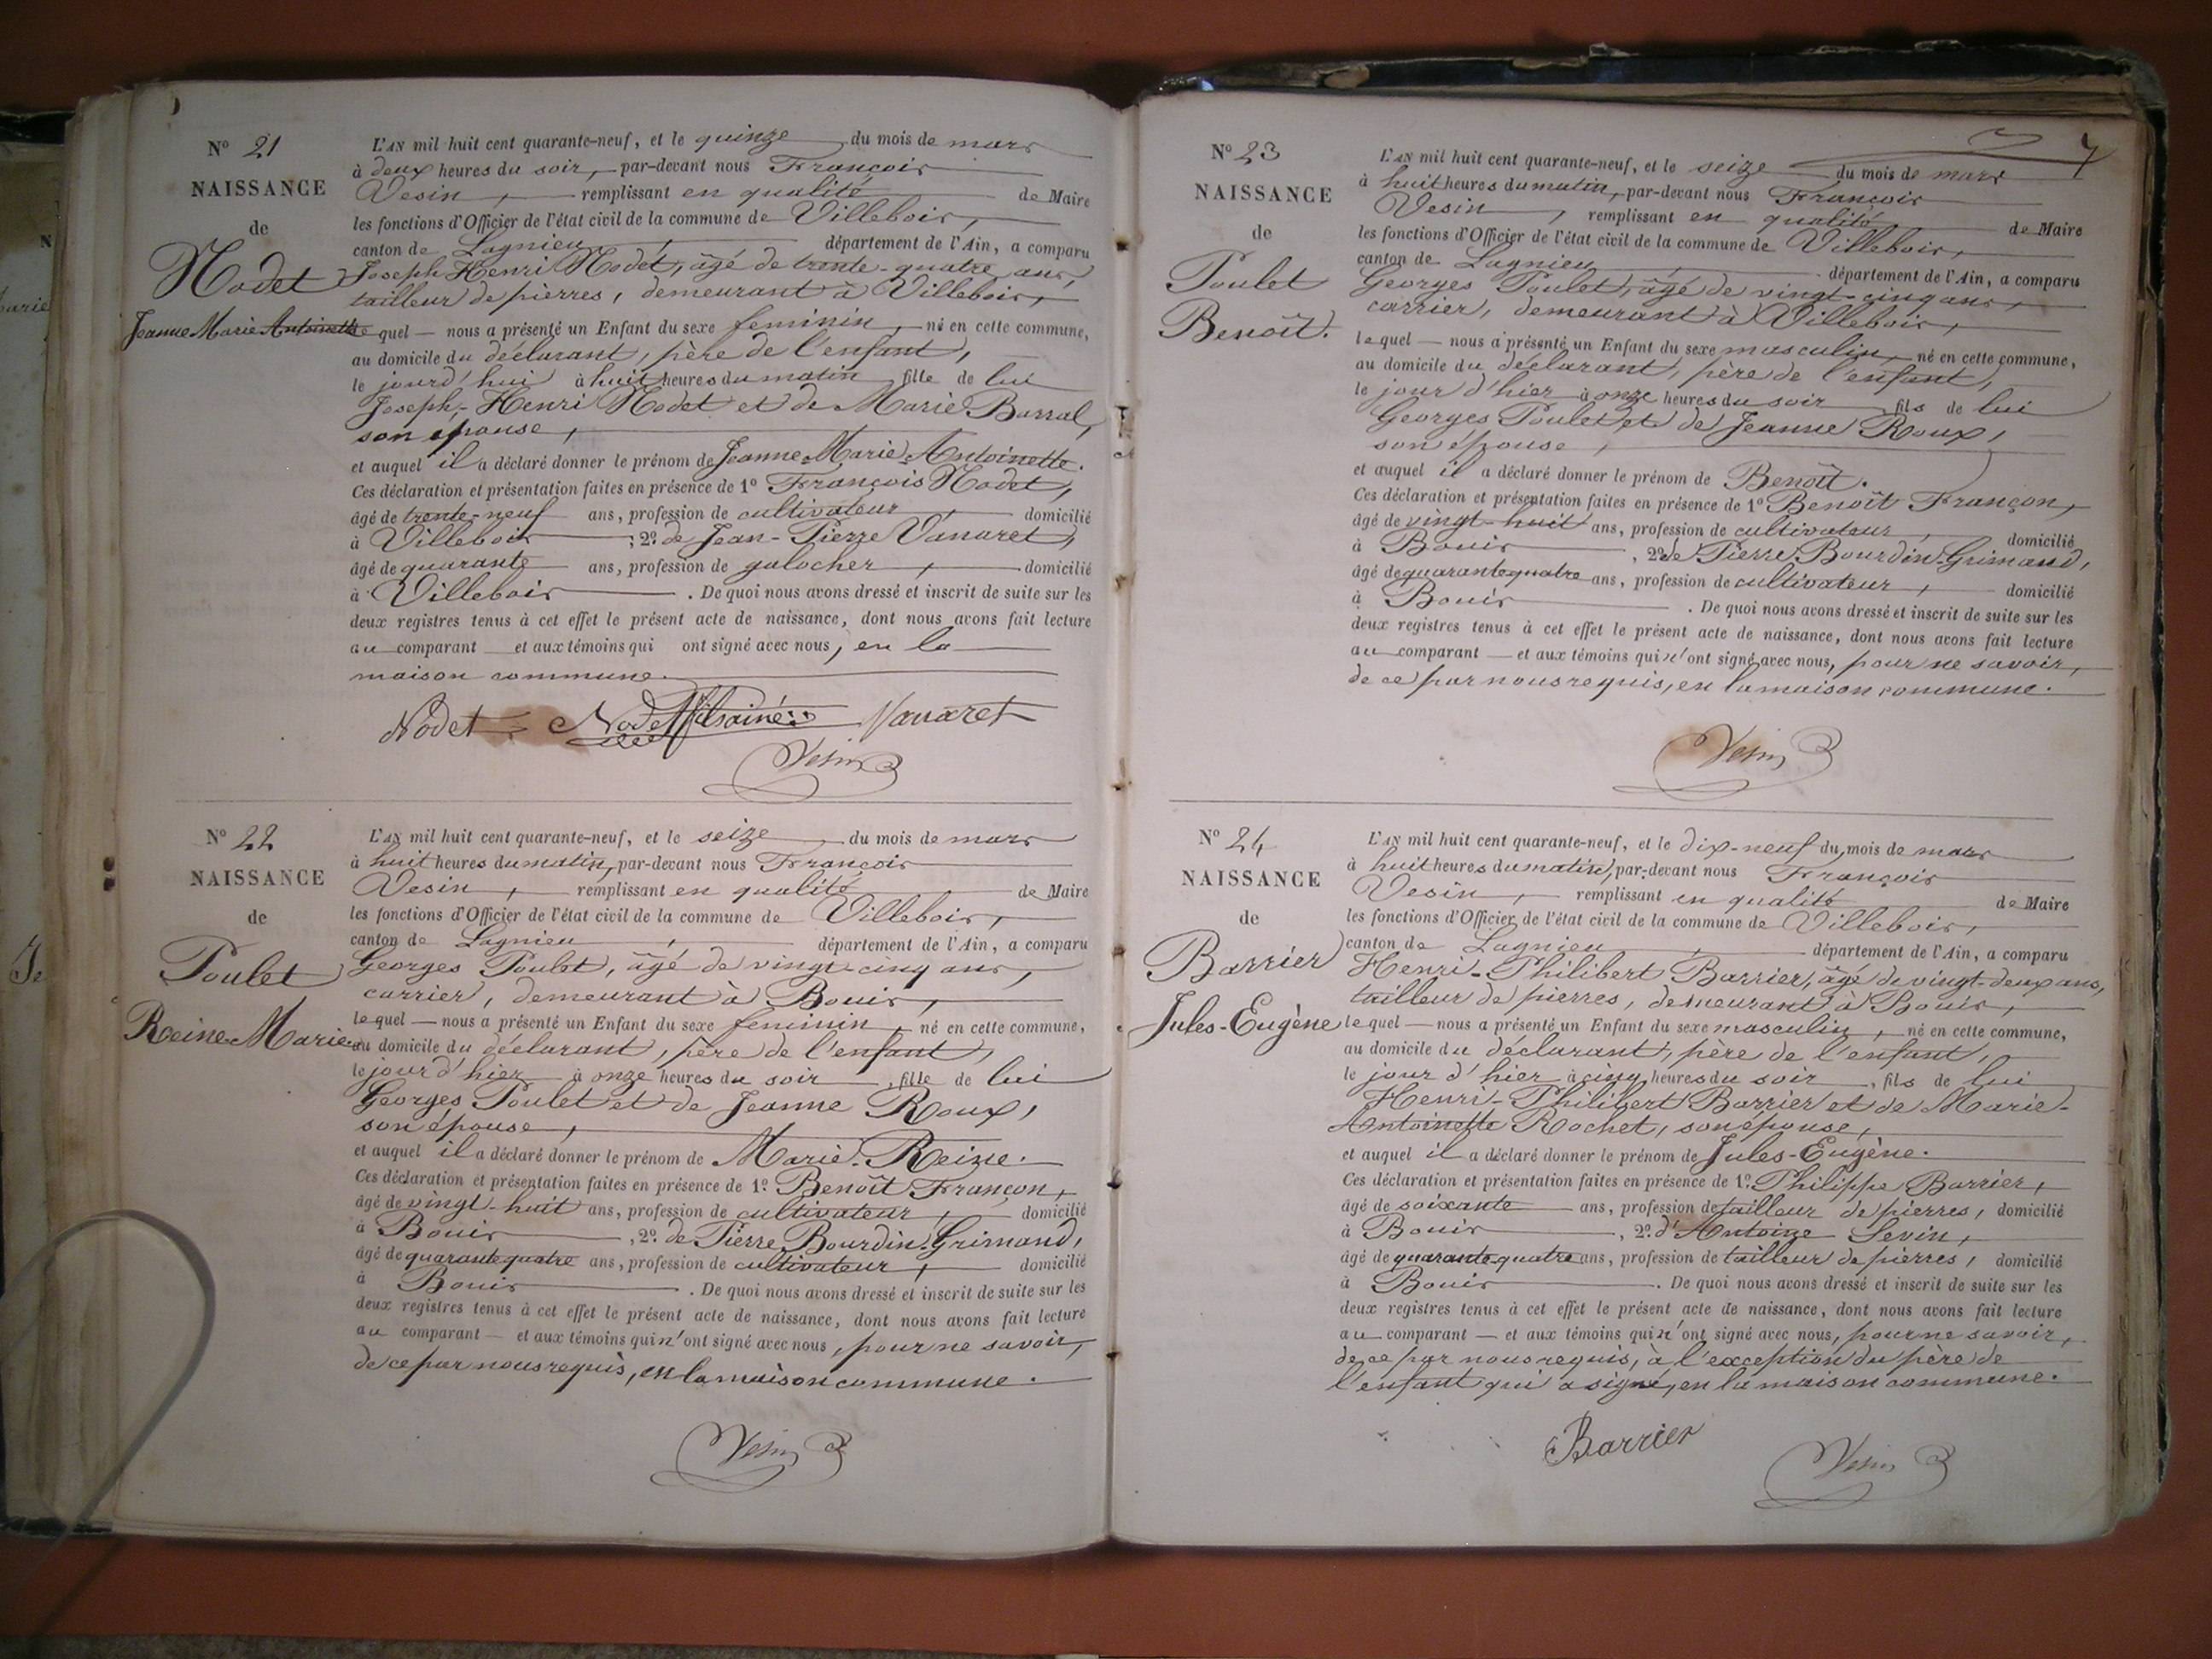 N° 21
NAISSANCE
de
Nodet
Jeanne Marie Antoinette
L'AN mil huit cent quarante-neuf, et le quinze du mois de mars
à deux heures du soir, par-devant nous François
Vesin, remplissant en qualité de Maire
les fonctions d'Officier de l'état civil de la commune de Villebois,
canton de Lagnieu, département de l'Ain, a comparu
Joseph Henri Nodet, âgé de trente-quatre ans,
tailleur de pierres, demeurant à Villebois,
lequel — nous a présenté un Enfant du sexe feminin, né en cette commune,
au domicile du déclarant, père de l'enfant,
le jourd'hui à huit heures du matin fille de lui
Joseph-Henri Nodet et de Marie Barral,
son épouse,
et auquel il a déclaré donner le prénom de Jeanne-Marie-Antoinette.
Ces déclaration et présentation faites en présence de 1° François Nodet,
âgé de trente-neuf ans, profession de cultivateur, domicilié
à Villebois ; 2° de Jean-Pierre Vanaret,
âgé de quarante ans, profession de galocher, domicilié
à Villebois. De quoi nous avons dressé et inscrit de suite sur les
deux registres tenus à cet effet le présent acte de naissance, dont nous avons fait lecture
au comparant — et aux témoins qui ont signé avec nous, en la
maison commune.
Nodet Nodet fils ainé Vanaret
Vesin
N° 22
NAISSANCE
de
Poulet
Reine-Marie
L'AN mil huit cent quarante-neuf, et le seize du mois de mars
à huit heures du matin, par-devant nous François
Vesin, remplissant en qualité de Maire
les fonctions d'Officier de l'état civil de la commune de Villebois,
canton de Lagnieu, département de l'Ain, a comparu
Georges Poulet, âgé de vingt-cinq ans,
carrier, demeurant à Bouis,
lequel — nous a présenté un Enfant du sexe feminin, né en cette commune,
au domicile du déclarant, père de l'enfant,
le jour d'hier à onze heures du soir, fille de lui
Georges Poulet et de Jeanne Roux,
son épouse,
et auquel il a déclaré donner le prénom de Marie-Reine.
Ces déclaration et présentation faites en présence de 1° Benoît Françon,
âgé de vingt-huit ans, profession de cultivateur, domicilié
à Bouis, 2° de Pierre Bourdin-Grimaud,
âgé de quarante quatre ans, profession de cultivateur, domicilié
à Bouis. De quoi nous avons dressé et inscrit de suite sur les
deux registres tenus à cet effet le présent acte de naissance, dont nous avons fait lecture
au comparant — et aux témoins qui n'ont signé avec nous, pour ne savoir,
de ce par nous requis, en la maison commune.
Vesin
7
N° 23
NAISSANCE
de
Poulet
Benoît.
L'AN mil huit cent quarante-neuf, et le seize du mois de mars
à huit heures du matin, par-devant nous François
Vesin, remplissant en qualité de Maire
les fonctions d'Officier de l'état civil de la commune de Villebois,
canton de Lagnieu, département de l'Ain, a comparu
Georges Poulet, âgé de vingt-cinq ans,
carrier, demeurant à Villebois,
lequel — nous a présenté un Enfant du sexe masculin, né en cette commune,
au domicile du déclarant, père de l'enfant,
le jour d'hier à onze heures du soir, fils de lui
Georges Poulet et de Jeanne Roux,
son épouse,
et auquel il a déclaré donner le prénom de Benoît.
Ces déclaration et présentation faites en présence de 1° Benoît Françon,
âgé de vingt-huit ans, profession de cultivateur, domicilié
à Bouis, 2° de Pierre Bourdin-Grimaud,
âgé de quarante quatre ans, profession de cultivateur, domicilié
à Bouis. De quoi nous avons dressé et inscrit de suite sur les
deux registres tenus à cet effet le présent acte de naissance, dont nous avons fait lecture
au comparant — et aux témoins qui n'ont signé avec nous, pour ne savoir,
de ce par nous requis, en la maison commune.
Vesin
N° 24
NAISSANCE
de
Barrier
Jules-Eugène
L'AN mil huit cent quarante-neuf, et le dix-neuf du mois de mars
à huit heures du matin, par-devant nous François
Vesin, remplissant en qualité de Maire
les fonctions d'Officier de l'état civil de la commune de Villebois,
canton de Lagnieu, département de l'Ain, a comparu
Henri-Philibert Barrier, âgé de vingt-deux ans,
tailleur de pierres, demeurant à Bouis,
lequel — nous a présenté un Enfant du sexe masculin, né en cette commune,
au domicile du déclarant, père de l'enfant,
le jour d'hier à cinq heures du soir, fils de lui
Henri-Philibert Barrier et de Marie-
Antoinette Rochet, son épouse,
et auquel il a déclaré donner le prénom de Jules-Eugène.
Ces déclaration et présentation faites en présence de 1° Philippe Barrier,
âgé de soixante ans, profession de tailleur de pierres, domicilié
à Bouis, 2° d'Antoine Sevin,
âgé de quarante-quatre ans, profession de tailleur de pierres, domicilié
à Bouis. De quoi nous avons dressé et inscrit de suite sur les
deux registres tenus à cet effet le présent acte de naissance, dont nous avons fait lecture
au comparant — et aux témoins qui n'ont signé avec nous, pour ne savoir,
de ce par nous requis, à l'exception du père de
l'enfant qui a signé, en la maison commune.
Barrier
Vesin